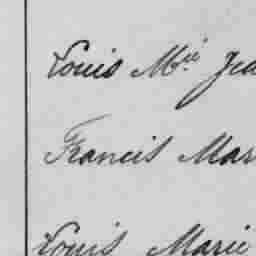 Louis M.ie Jea
Francis Mar
Louis Marie